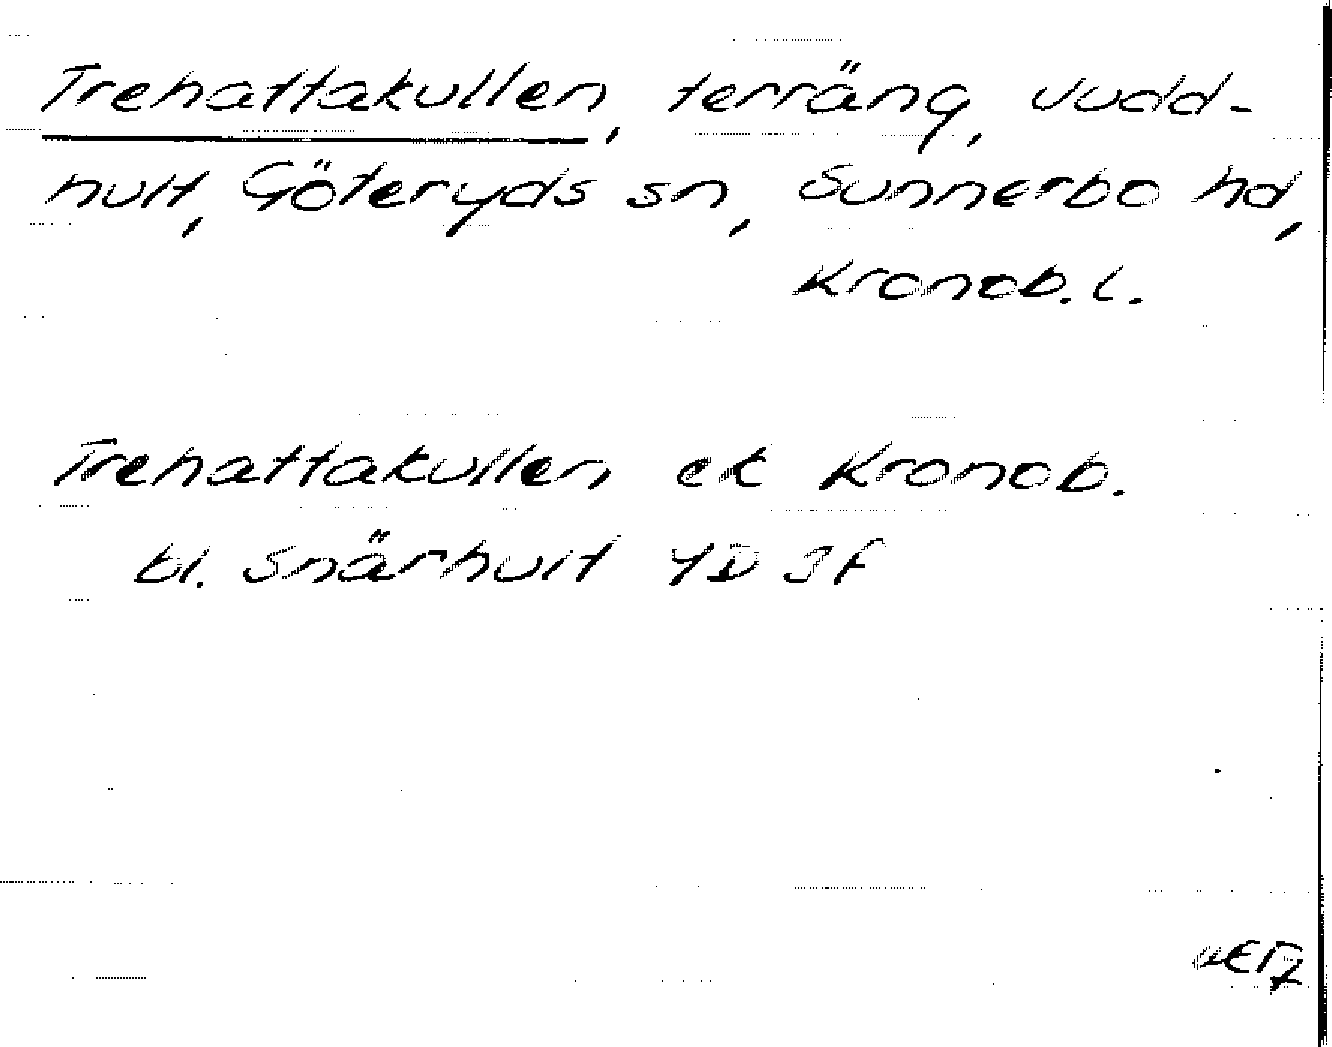 Trehattakullen, terräng, Vudd-
hult, Göteryds sn, Sunnerbo hd,
Kronob. l.
Trehattakullen ek Kronob.
bl. Snärhult 4D 3f